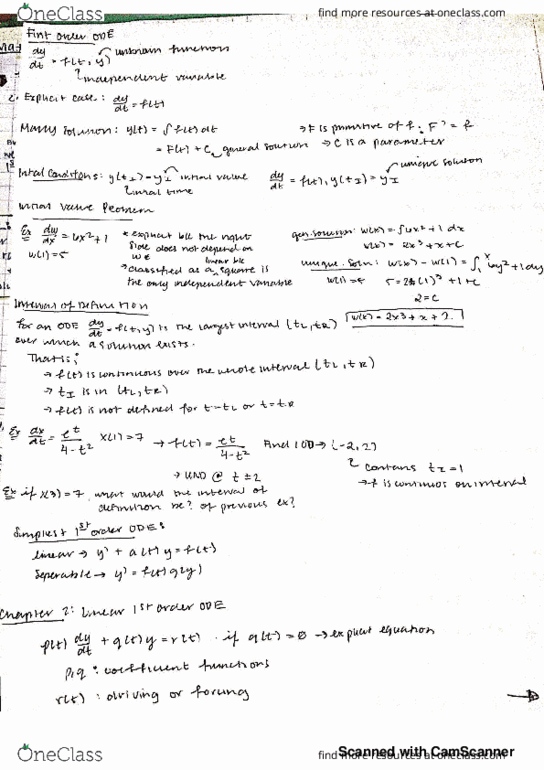 OneClass
find more resources at oneclass.com
First Order ODE
dy/dt = f(t, y) unknown function
independent variable
2. Explicit case: dy/dt = f(t)
Many solution: y(t) = ∫ f(t) dt → F is primitive of f. F' = f
= F(t) + C, general solution → C is a parameter
Initial Conditions: y(t_I) = y_I initial value dy/dt = f(t), y(t_I) = y_I unique solution
initial time
Initial Value Problem
Ex dw/dx = 6x² + 1 * explicit b/c the right gen. solution: w(x) = ∫ 6x² + 1 dx
w(1) = 5 side does not depend on w(x) = 2x³ + x + C
linear b/c unique soln: w(x) - w(1) = ∫₁ˣ 6y² + 1 dy
→ classified as a square is w(1) = 5 5 = 2(1)³ + 1 + C
the only independent variable 2 = C
Interval of Definition w(x) = 2x³ + x + 2
For an ODE dy/dt = f(t, y) is the largest interval (t_L, t_R)
over which a solution exists.
That is:
→ f(t) is continuous over the whole interval (t_L, t_R)
→ t_I is in (t_L, t_R)
→ f(t) is not defined for t = t_L or t = t_R
Ex dx/dt = e^t/4-t² x(1) = 7 → f(t) = e^t/4-t² Find IOD → (-2, 2)
→ UND @ t ± 2 contains t_I = 1
→ f is continuous on interval
Ex if x(3) = 7, what would the interval of
definition be? of previous ex?
Simplest 1st order ODEs
linear → y' + a(t) y = f(t)
Seperable → y' = f(t) g(y)
Chapter 2: Linear 1st Order ODE
p(t) dy/dt + q(t) y = r(t) . if q(t) = 0 → explicit equation
p, q : coefficient functions
r(t) : driving or forcing
Scanned with CamScanner
OneClass
find more resources at oneclass.com